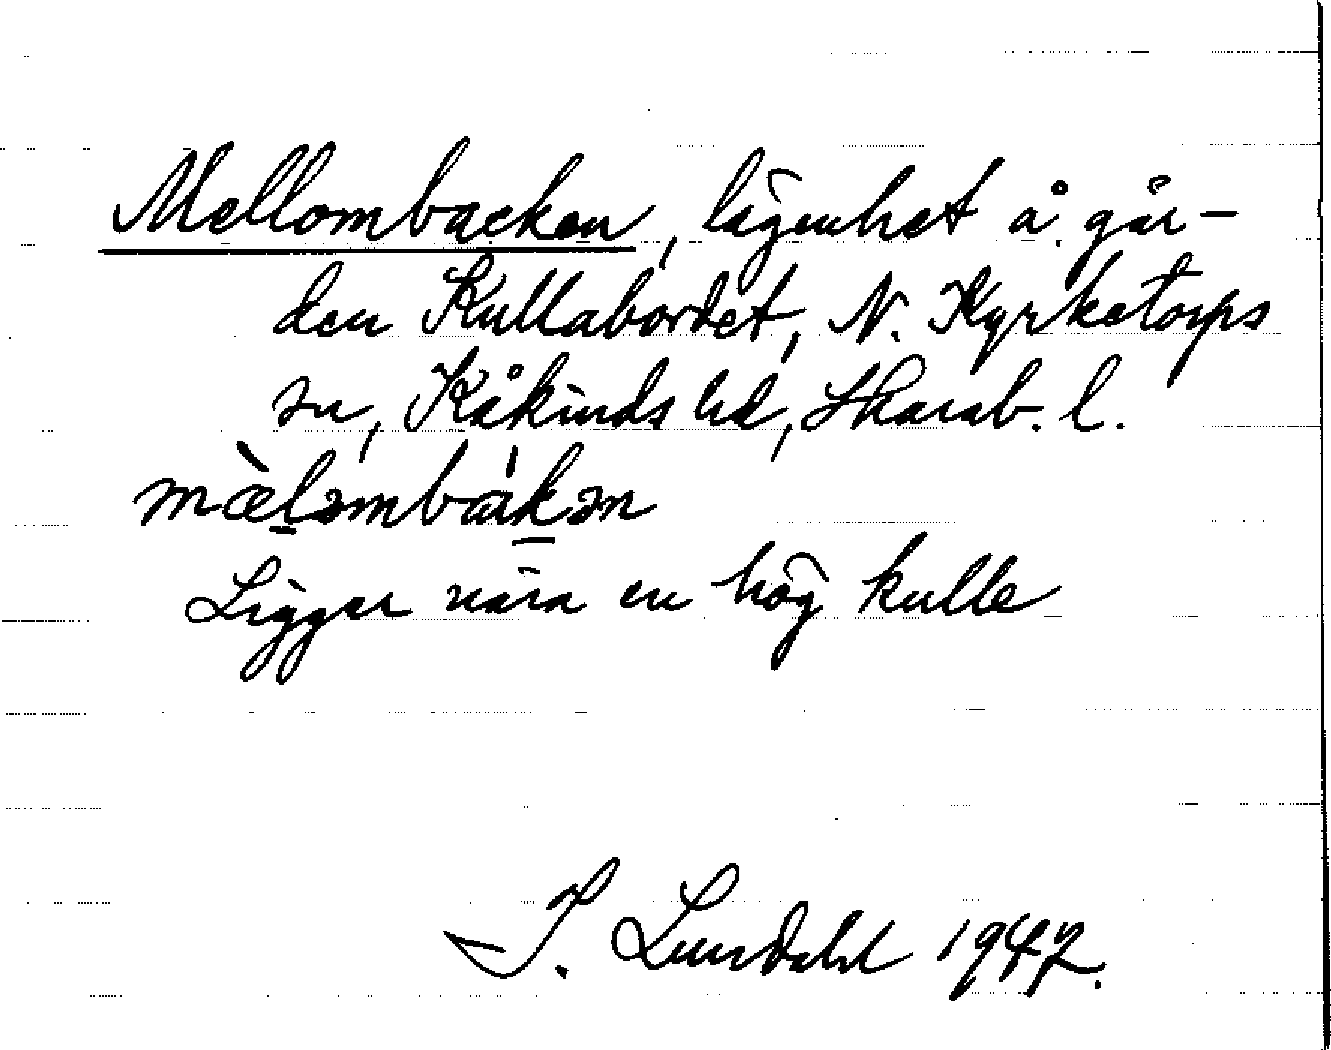 Mellombacken, lägenhet å går-
den Kullabordet, N. Kyrketorps
sn, Kåkinds hd, Skarab. l.
mæ̀l̠əmbàk̠ən
Ligger nära en hög kulle
I. Lundahl 1947.